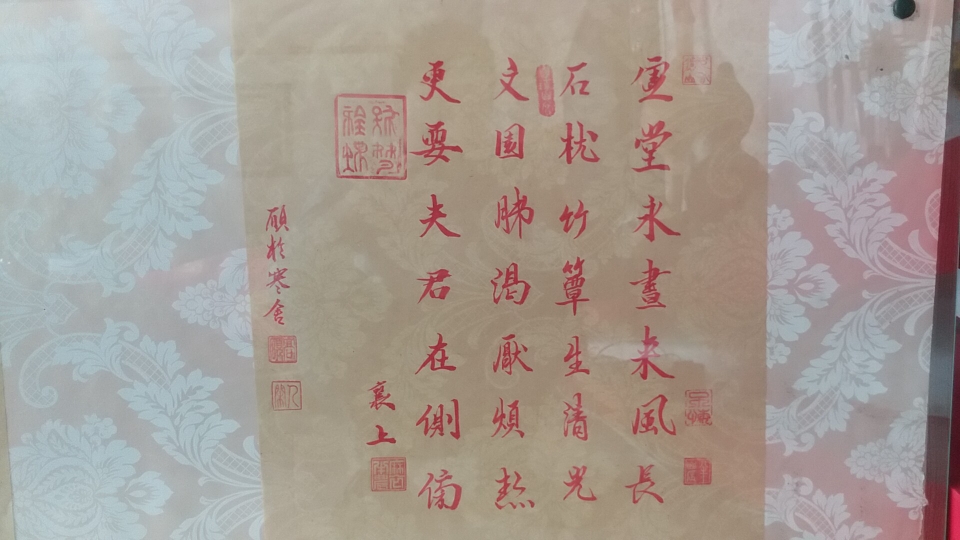 虛堂永晝来風長
石枕竹簟生清光
文園肺渴厭煩熱
更要夫君在側傍
襄上
於寒舍